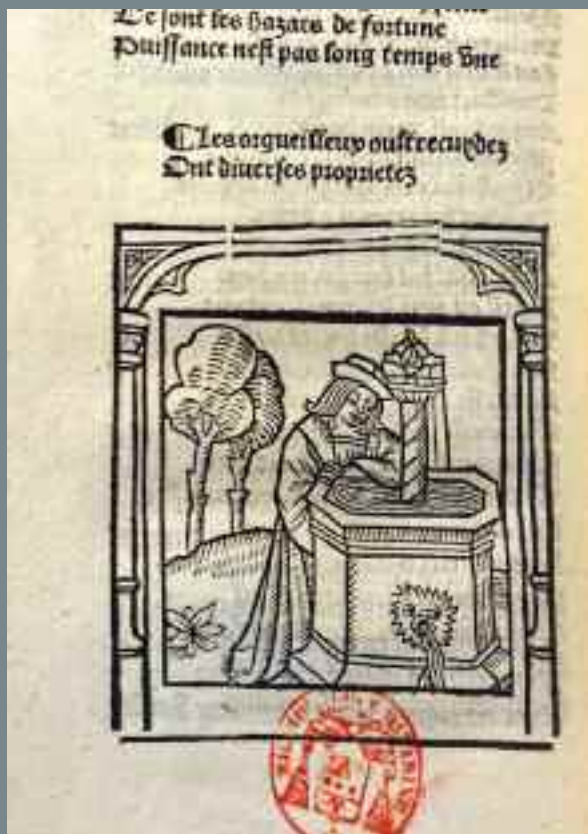 Ce sont les hazars de fortune
Puissance nest pas long temps vne
¶Les orgueilleux oultrecuydez
Ont diuerses proprietez